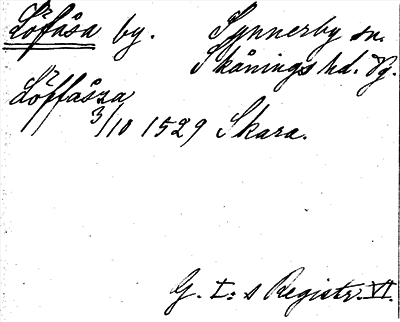 Löfåsa by. Synnerby sn.
Skånings hd. Vg.
Löffåsza
3/10 1529 Skara.
G. I:s Registr. VI.